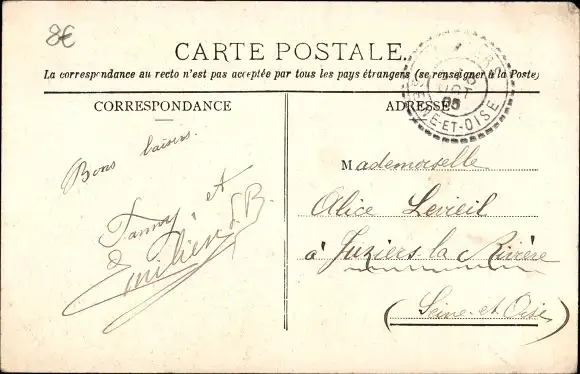 8€
CARTE POSTALE.
La correspondance au recto n'est pas acceptée par tous les pays étrangers (se renseigner à la Poste)
CORRESPONDANCE
ADRESSE
SEINE-ET-OISE
Bons baisers.
Fanny et
Emilien L.B.
Mademoiselle
Alice Levieil
à Juziers-la Rivière
(Seine-et-Oise)